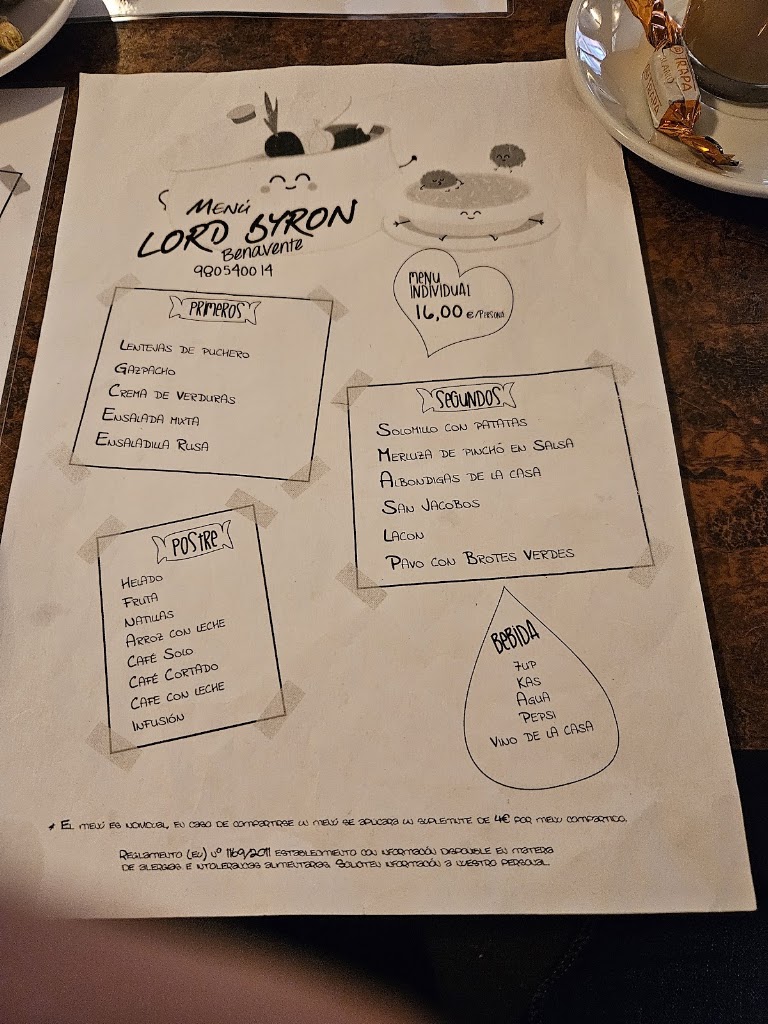 Menú
LORD BYRON
Benavente
980540014
MENU
INDIVIDUAL
16,00 €/PERSONA
PRIMEROS
LENTEJAS DE PUCHERO
GAZPACHO
CREMA DE VERDURAS
ENSALADA MIXTA
ENSALADILLA RUSA
SEGUNDOS
SOLOMILLO CON PATATAS
MERLUZA DE PINCHÓ EN SALSA
ALBONDIGAS DE LA CASA
SAN JACOBOS
LACON
PAVO CON BROTES VERDES
POSTRE
HELADO
FRUTA
NATILLAS
ARROZ CON LECHE
CAFÉ SOLO
CAFÉ CORTADO
CAFE CON LECHE
INFUSIÓN
BEBIDA
7UP
KAS
AGUA
PEPSI
VINO DE LA CASA
* EL MENÚ ES INDIVIDUAL, EN CASO DE COMPARTIRSE UN MENÚ SE APLICARA UN SUPLEMENTE DE 4€ POR MENU COMPARTIDO.
REGLAMENTO (EU) Nº 1169/2011 ESTABLECIMIENTO CON INFORMACIÓN DISPONIBLE EN MATERIA
DE ALERGIAS E INTOLERANCIAS ALIMENTARIAS. SOLICITEN INFORMACIÓN A NUESTRO PERSONAL.